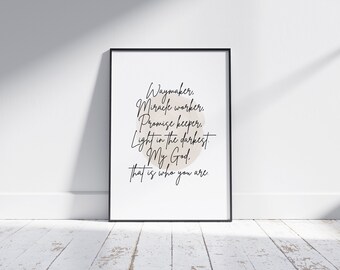 Waymaker,
Miracle worker,
Promise keeper,
Light in the darkest
My God,
that is who you are.